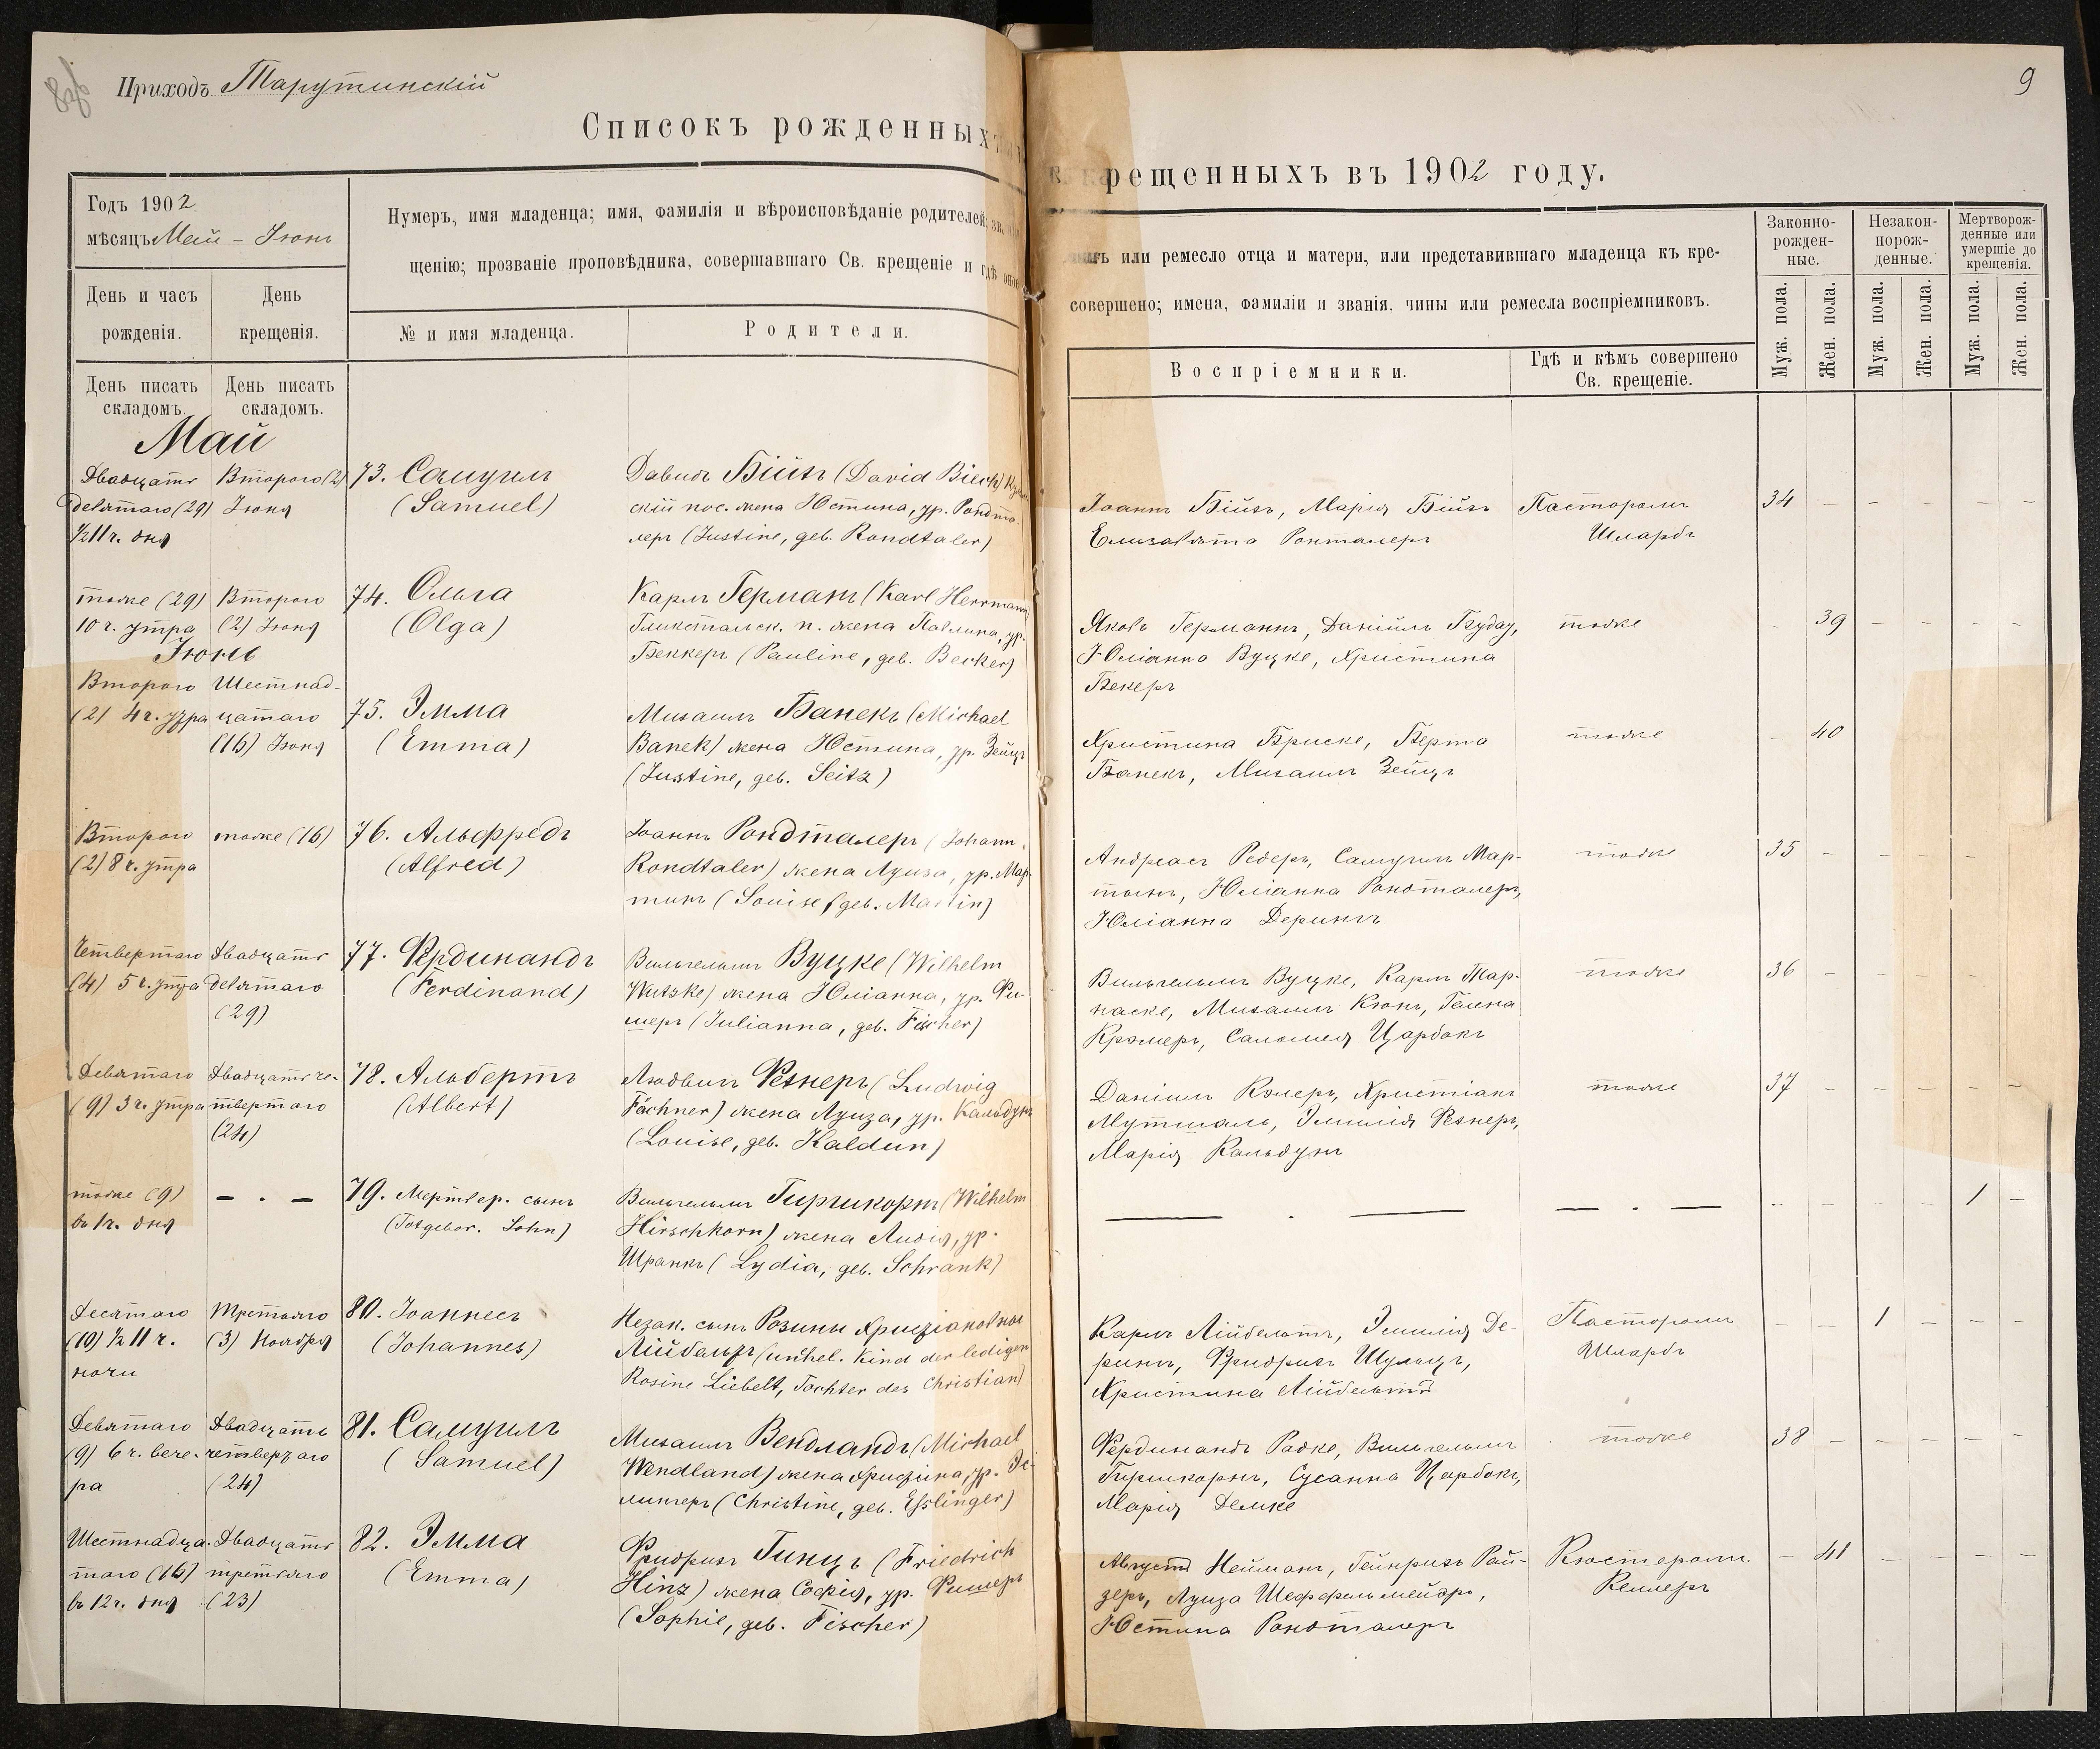 Приходъ Тарутинскій
Списокъ рожденныхъ и
Годъ 1902
мѣсяцъ Май - Іюнь
Нумеръ, имя младенца; имя, фамилія и вѣроисповѣданіе родителей;
щенію; прозваніе проповѣдника, совершавшаго Св. крещеніе и гдѣ оное
День и часъ рожденія.
День крещенія.
№ и имя младенца.
Родители.
День писать складомъ.
День писать складомъ.
Май
Двадцать Второго (2) 73. Самуилъ Давидъ Бійзъ (David Biesch)
девятаго (29) Іюня (Samuel) скій пос. жена Юстина, ур. Рондта-
½11 ч. дня леръ (Justine, geb. Rondtaler)
тоже (29) Второго 74. Ольга Карлъ Германъ (Karl Herrmann)
10 ч. утра (2) Іюня (Olga) Гликстальск. п. жена Павлина, ур.
Беккеръ (Pauline, geb. Becker)
Іюнь
Второго Шестнад-
(2) 4 ч. утра цатаго 75. Эмма Михаилъ Банекъ (Michael
(16) Іюня (Emma) Banek) жена Юстина, ур. Зейцъ
(Justine, geb. Seitz)
Второго тоже (16) 76. Альфредъ Іоаннъ Рондталеръ (Johann
(2) 8 ч. утра (Alfred) Rondtaler) жена Луиза, ур. Мар-
тинъ (Louise, geb. Martin)
Четвертаго Двадцать 77. Фердинандъ Вильгельмъ Вуцке (Wilhelm
(4) 5 ч. утра девятаго (Ferdinand) Wutzke) жена Юліанна, ур. Фи-
(29) шеръ (Julianna, geb. Fischer)
Девятаго Двадцать че- 78. Альбертъ Людвигъ Фехнеръ (Ludwig
(9) 3 ч. утра твертаго (Albert) Fächner) жена Луиза, ур. Кальдунъ
(24) (Louise, geb. Kaldun)
тоже (9) — . — 79. Мертвер. сынъ Вильгельмъ Гиршкорнъ (Wilhelm
въ 1 ч. дня (Totgebor. Sohn) Hirschkorn) жена Лидія, ур.
Шранкъ (Lydia, geb. Schrank)
Десятаго Третьяго 80. Іоаннесъ Незак. сынъ Розины Христіановны
(10) ½ 11 ч. (3) Ноября (Johannes) Лійбельтъ (unehel. Kind der ledigen
ночи Rosine Liebelt, Tochter des Christian)
Девятаго Двадцать 81. Самуилъ Михаилъ Вендландъ (Michael
(9) 6 ч. вече- четвертаго (Samuel) Wendland) жена Христина, ур. Эс-
ра (24) лингеръ (Christine, geb. Esslinger)
Шестнадца- Двадцать 82. Эмма Фридрихъ Гинцъ (Friedrich
таго (16) третьяго (Emma) Hinz) жена Софія, ур. Фишеръ
въ 12 ч. дня (23) (Sophie, geb. Fischer)
9
крещенныхъ въ 1902 году.
чинъ или ремесло отца и матери, или представившаго младенца къ кре-
совершено; имена, фамиліи и званія, чины или ремесла воспріемниковъ.
Законно-рожден-ные.
Незакон-норож-денные.
Мертворож-денные или умершіе до крещенія.
Воспріемники.
Гдѣ и кѣмъ совершено Св. крещеніе.
Муж. пола. Жен. пола. Муж. пола. Жен. пола. Муж. пола. Жен. пола.
Іоаннъ Бійзъ, Марія Бійзъ Пасторомъ 34 - - - - -
Елизавета Ронталеръ Шлардъ
Яковъ Германнъ, Даніилъ Будау, тоже - 39 - - - -
Юліанна Вуцке, Христина
Бекеръ
Христина Бриске, Берта тоже - 40
Банекъ, Михаилъ Зейцъ
Андреасъ Редеръ, Самуилъ Мар- тоже 35 - - - - -
тинъ, Юліанна Рондталеръ,
Юліанна Дерингъ
Вильгельмъ Вуцке, Карлъ Тар- тоже 36 - - - -
наске, Михаилъ Кюнъ, Гелена
Крэмеръ, Саломея Царбокъ
Даніилъ Кэлеръ, Христіанъ тоже 37 - - - - -
Мутшалъ, Эмилія Фехнеръ,
Марія Кальдунъ
— . — — . — - - - - 1 -
Карлъ Лійбельтъ, Эмилія Де- Пасторомъ - - 1 - - -
рингъ, Фридрихъ Шульцъ, Шлардъ
Христина Лійбельтъ
Фердинандъ Радке, Вильгельмъ тоже 38 - - - - -
Гиршкорнъ, Сусанна Царбокъ,
Марія Демке
Августъ Нейманъ, Гейнрихъ Рай- Кюстеромъ - 41 - - - -
зеръ, Луиза Шеффельмейеръ, Келлеръ
Юстина Рондталеръ